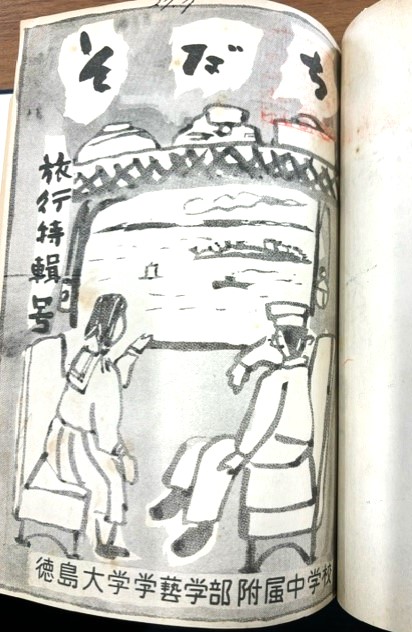 そだち
旅行特輯号
徳島大学学藝学部附属中学校